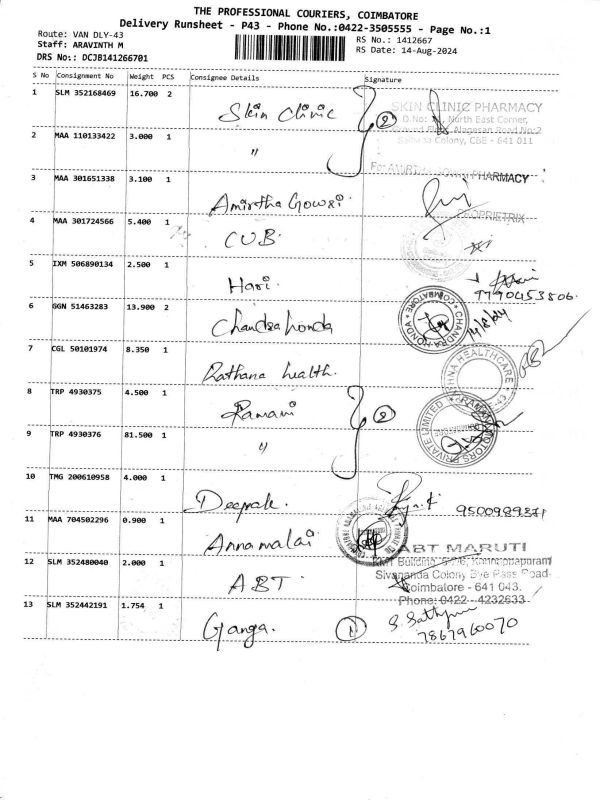 THE PROFESSIONAL COURIERS, COIMBATORE
Delivery Runsheet - P43 - Phone No.:0422-3505555 - Page No.:1
Route: VAN DLY-43
RS No.: 1412667
Staff: ARAVINTH M
RS Date: 14-Aug-2024
DRS No:: DCJB141266701
S No Consignment No Weight PCS Consignee Details Signature
1 SLM 352168469 16.700 2
Skin Clinic 2
SKIN CLINIC PHARMACY
North East Corner,
Alagesan Road No:2
Colony, CBE - 641 011
2 MAA 110133422 3.000 1
"
PHARMACY
3 MAA 301651338 3.100 1
Amirtha Gowri
PROPRIETRIX
4 MAA 301724566 5.400 1
CUB.
5 IXM 506890134 2.500 1
Hari.
6 GGN 51463283 13.900 2
Chandra honda
CHANDRA HONDA * COIMBATORE *
14/8/24
7 CGL 50101974 8.350 1
Rathana health.
HEALTHCARE
8 TRP 4930375 4.500 1
Ramani 2
MOTORS PRIVATE LIMITED
9 TRP 4930376 81.500 1
"
10 TMG 200610958 4.000 1
Deepak.
11 MAA 704502296 0.900 1
Annamalai
ABT MARUTI
12 SLM 352480040 2.000 1
ABT.
Sivananda Colony Bye Pass Road
Coimbatore - 641 043.
Phone: 0422 - 4232633
13 SLM 352442191 1.754 1
Ganga. 1
7867960070